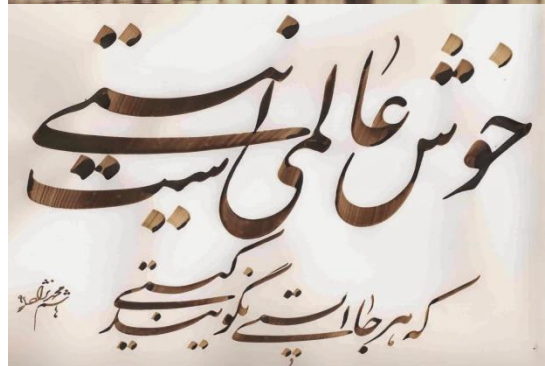 خوش عالمی است نیستی
که هر جا ایستی نگویند کیستی